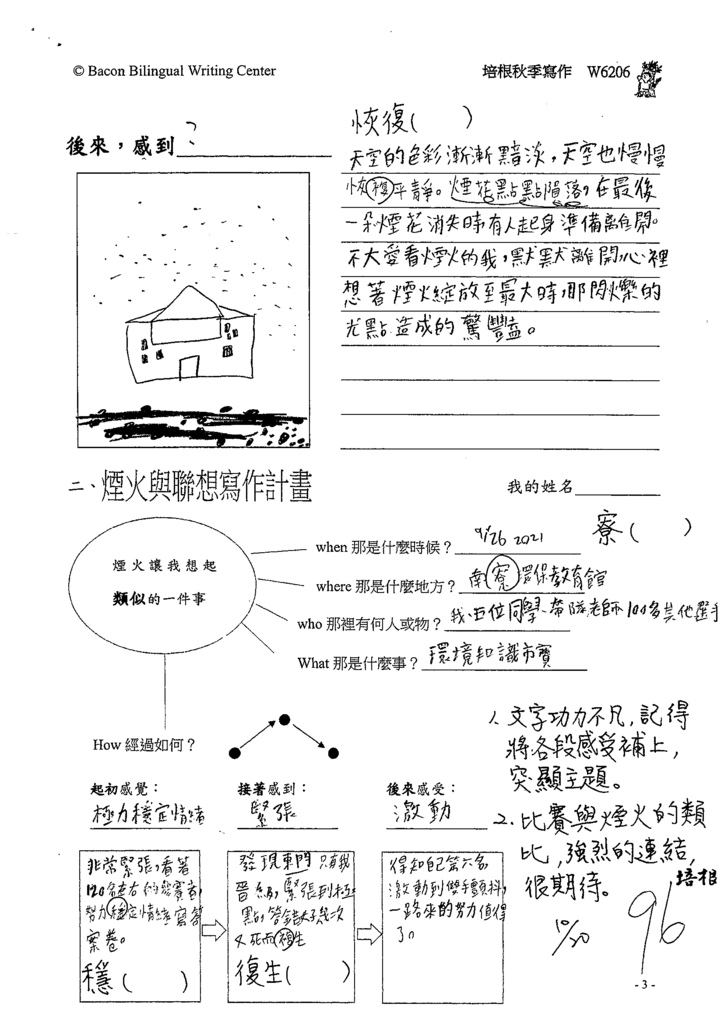 © Bacon Bilingual Writing Center
培根秋季寫作 W6206
恢復( )
後來，感到
?
天空的色彩漸漸黯淡，天空也慢慢
恢複平靜。煙花點點隕落，在最後
一朵煙花消失時有人起身準備離開。
不大愛看煙火的我，默默離開心裡
想著煙火綻放至最大時，那閃爍的
光點造成的驚豔。
二、煙火與聯想寫作計畫
我的姓名
煙火讓我想起
類似的一件事
when 那是什麼時候？ 9/26 2021
寮( )
where 那是什麼地方？ 南寮環保教育館
who 那裡有何人或物？ 我、五位同學、帶隊老師 100多其他選手
What 那是什麼事？ 環境知識市賽
How 經過如何？
起初感覺：
極力穩定情緒
接著感到：
緊張
後來感受：
激動
非常緊張，看著
120名左右的競賽者，
努力穩定情緒寫答
案卷。
穩( )
發現東門只有我
晉級，緊張到極
點，答錯好幾次
又死而複生
復生( )
得知自己第六名，
激動到雙手顫抖，
一路來的努力值得
了。
1. 文字功力不凡，記得
將各段感受補上，
突顯主題。
2. 比賽與煙火的類
比，強烈的連結，
很期待。
培根
10/20
96
- 3 -